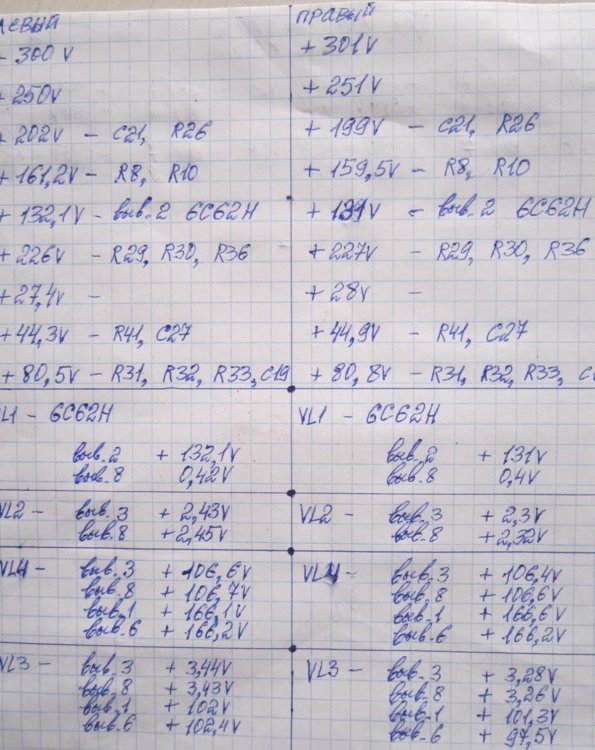 ЛЕВЫЙ
+ 300 V
+ 250V
+ 202V - C21, R26
+ 161,2V - R8, R10
+ 132,1V - выв. 2 6С62Н
+ 226V - R29, R30, R36
+ 27,4V -
+ 44,3V - R41, C27
+ 80,5V - R31, R32, R33, C19
VL1 - 6С62Н
выв. 2 + 132,1V
выв. 8 0,42V
VL2 - выв. 3 + 2,43V
выв. 8 + 2,45V
VL4 - выв. 3 + 106,6V
выв. 8 + 106,7V
выв. 1 + 166,1V
выв. 6 + 166,2V
VL3 - выв. 3 + 3,44V
выв. 8 + 3,43V
выв. 1 + 102V
выв. 6 + 102,4V
ПРАВЫЙ
+ 301V
+ 251V
+ 199V - C21, R26
+ 159,5V - R8, R10
+ 131V - выв. 2 6С62Н
+ 227V - R29, R30, R36
+ 28V -
+ 44,9V - R41, C27
+ 80,8V - R31, R32, R33,
VL1 - 6С62Н
выв. 2 + 131V
выв. 8 0,4V
VL2 - выв. 3 + 2,3V
выв. 8 + 2,32V
VL4 - выв. 3 + 106,4V
выв. 8 + 106,6V
выв. 1 + 166,6V
выв. 6 + 166,2V
VL3 - выв. 3 + 3,28V
выв. 8 + 3,26V
выв. 1 + 101,3V
выв. 6 + 97,5V